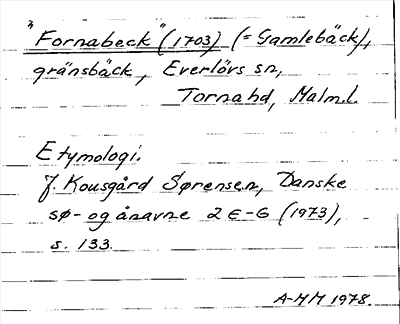 "Fornabeck" (1703) (= Gamlebäck),
gränsbäck, Everlövs sn,
Torna hd, Malm.l.
Etymologi.
J. Kousgård Sørensen, Danske
sø- og ånavne 2 E-G (1973),
s. 133.
A-MM 1978.